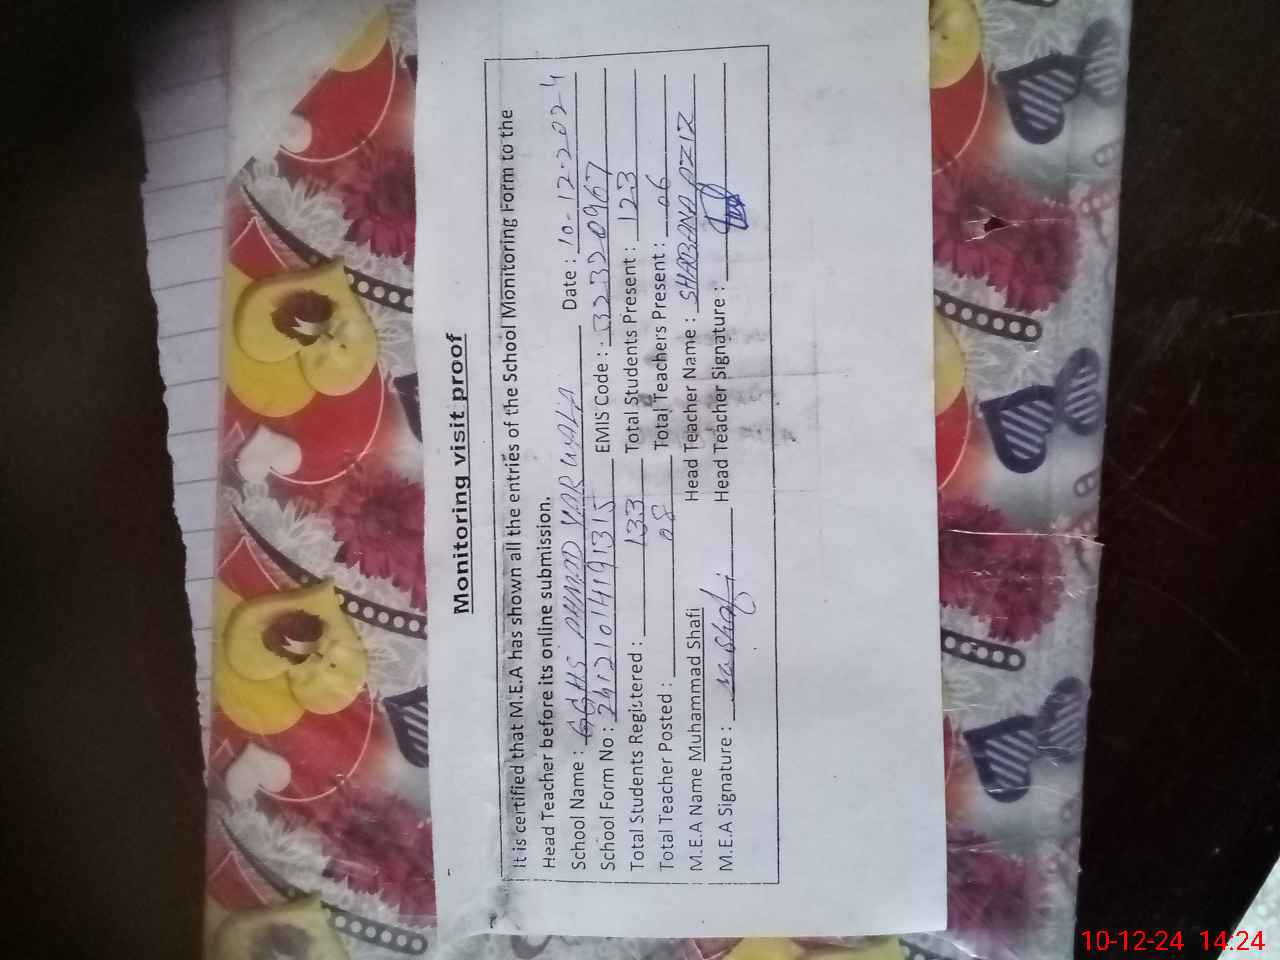 Monitoring visit proof
It is certified that M.E.A has shown all the entries of the School Monitoring Form to the
Head Teacher before its online submission.
School Name : GGHS AHMAD YAR WALA Date : 10-12-2024
School Form No : 24121014191315 EMIS Code : 32320967
Total Students Registered : 133 Total Students Present : 123
Total Teacher Posted : 08 Total Teachers Present : 06
M.E.A Name Muhammad Shafi Head Teacher Name : SHABANA AZIZ
M.E.A Signature : M. Shafi Head Teacher Signature :
10-12-24 14:24